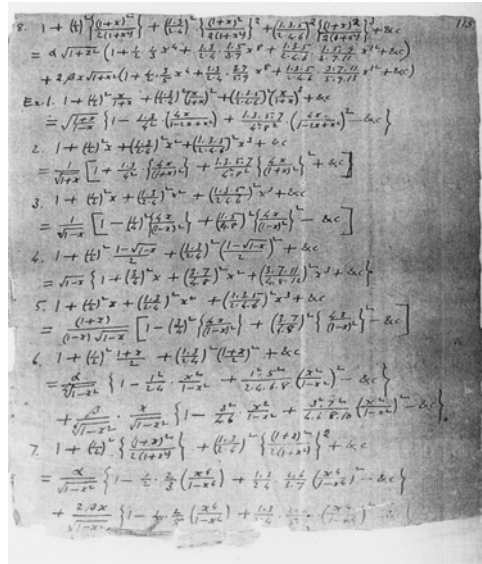 175
8. 1 + (½)² {(1+x)²/2(1+x²)} + (1·3/2·4)² {(1+x)²/2(1+x²)}² + (1·3·5/2·4·6)² {(1+x)²/2(1+x²)}³ + &c
= α √1+x² (1 + ½·⅓ x⁴ + 1·3/2·4 · 1·5/3·7 x⁸ + 1·3·5/2·4·6 · 1·5·9/3·7·11 x¹² + &c)
+ 2βx √1+x² (1 + ½· x⁴ + 1·3/2·4 · 3·7/5·9 x⁸ + 1·3·5/2·4·6 · 3·7·11/5·9·13 x¹² + &c)
Ex. 1. 1 + (½)² x/1+x + (1·3/2·4)² (x/1+x)² + (1·3·5/2·4·6)² (x/1+x)³ + &c
{1 - 1·3/4² (4x/1-2x+x²) + 1·3·5·7/4²·8² · (4x/1-2x+x²)² - &c}
2. 1 + (½)² x + (1·3/2·4)² x² + (1·3·5/2·4·6)² x³ + &c
= 1/√1+x [1 + 1·3/4² {4x/(1+x)²} + 1·3·5·7/4²·8² {4x/(1+x)²}² + &c]
3. 1 + (½)² x + (1·3/2·4)² x² + (1·3·5/2·4·6)² x³ + &c
= 1/√1-x [1 - (¼)² {4x/(1-x)²} + (1·5/4·8)² {4x/(1-x)²}² - &c]
4. 1 + (½)² 1-√1-x/2 + (1·3/2·4)² (1-√1-x/2)² + &c
= √1-x {1 + (¾)² x + (3·7/4·8)² x² + (3·7·11/4·8·12)² x³ + &c}
5. 1 + (½)² x + (1·3/2·4)² x² + (1·3·5/2·4·6)² x³ + &c
= (1+x)/(1-x)√1-x [1 - (¾)² {4x/(1-x)²} + (3·7/4·8)² {4x/(1-x)²}² - &c]
6. 1 + (½)² 1+x/2 + (1·3/2·4)² (1+x/2)² + &c
= α/∜1-x² {1 - 1²/2·4 · x²/1-x² + 1²·5²/2·4·6·8 (x²/1-x²)² - &c}
+ β/∜1-x² · x/√1-x² {1 - 3²/4·6 · x²/1-x² + 3²·7²/4·6·8·10 (x²/1-x²)² - &c}
7. 1 + (½)² {(1+x)²/2(1+x²)} + (1·3/2·4)² {(1+x)²/2(1+x²)}² + &c
= α/√1-x² {1 - ½·⅔ (x⁴/1-x⁴) + 1·3/2·4 · 2·6/3·7 (x⁴/1-x⁴)² - &c}
+ 2βx/√1-x² {1 - ½· (x⁴/1-x⁴) + 1·3/2·4 · (x⁴/1-x⁴)² - &c}